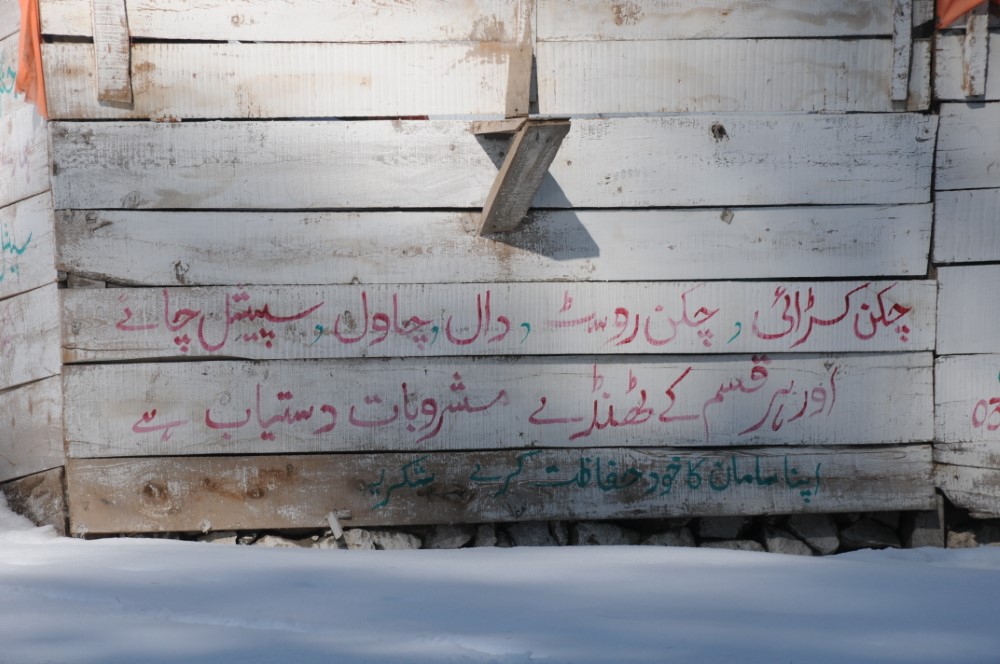 چکن کڑائی، چکن روسٹ، دال، چاول، سپیشل چائے
اور ہر قسم کے ٹھنڈے مشروبات دستیاب ہے
اپنا سامان کا خود حفاظت کرے شکریہ